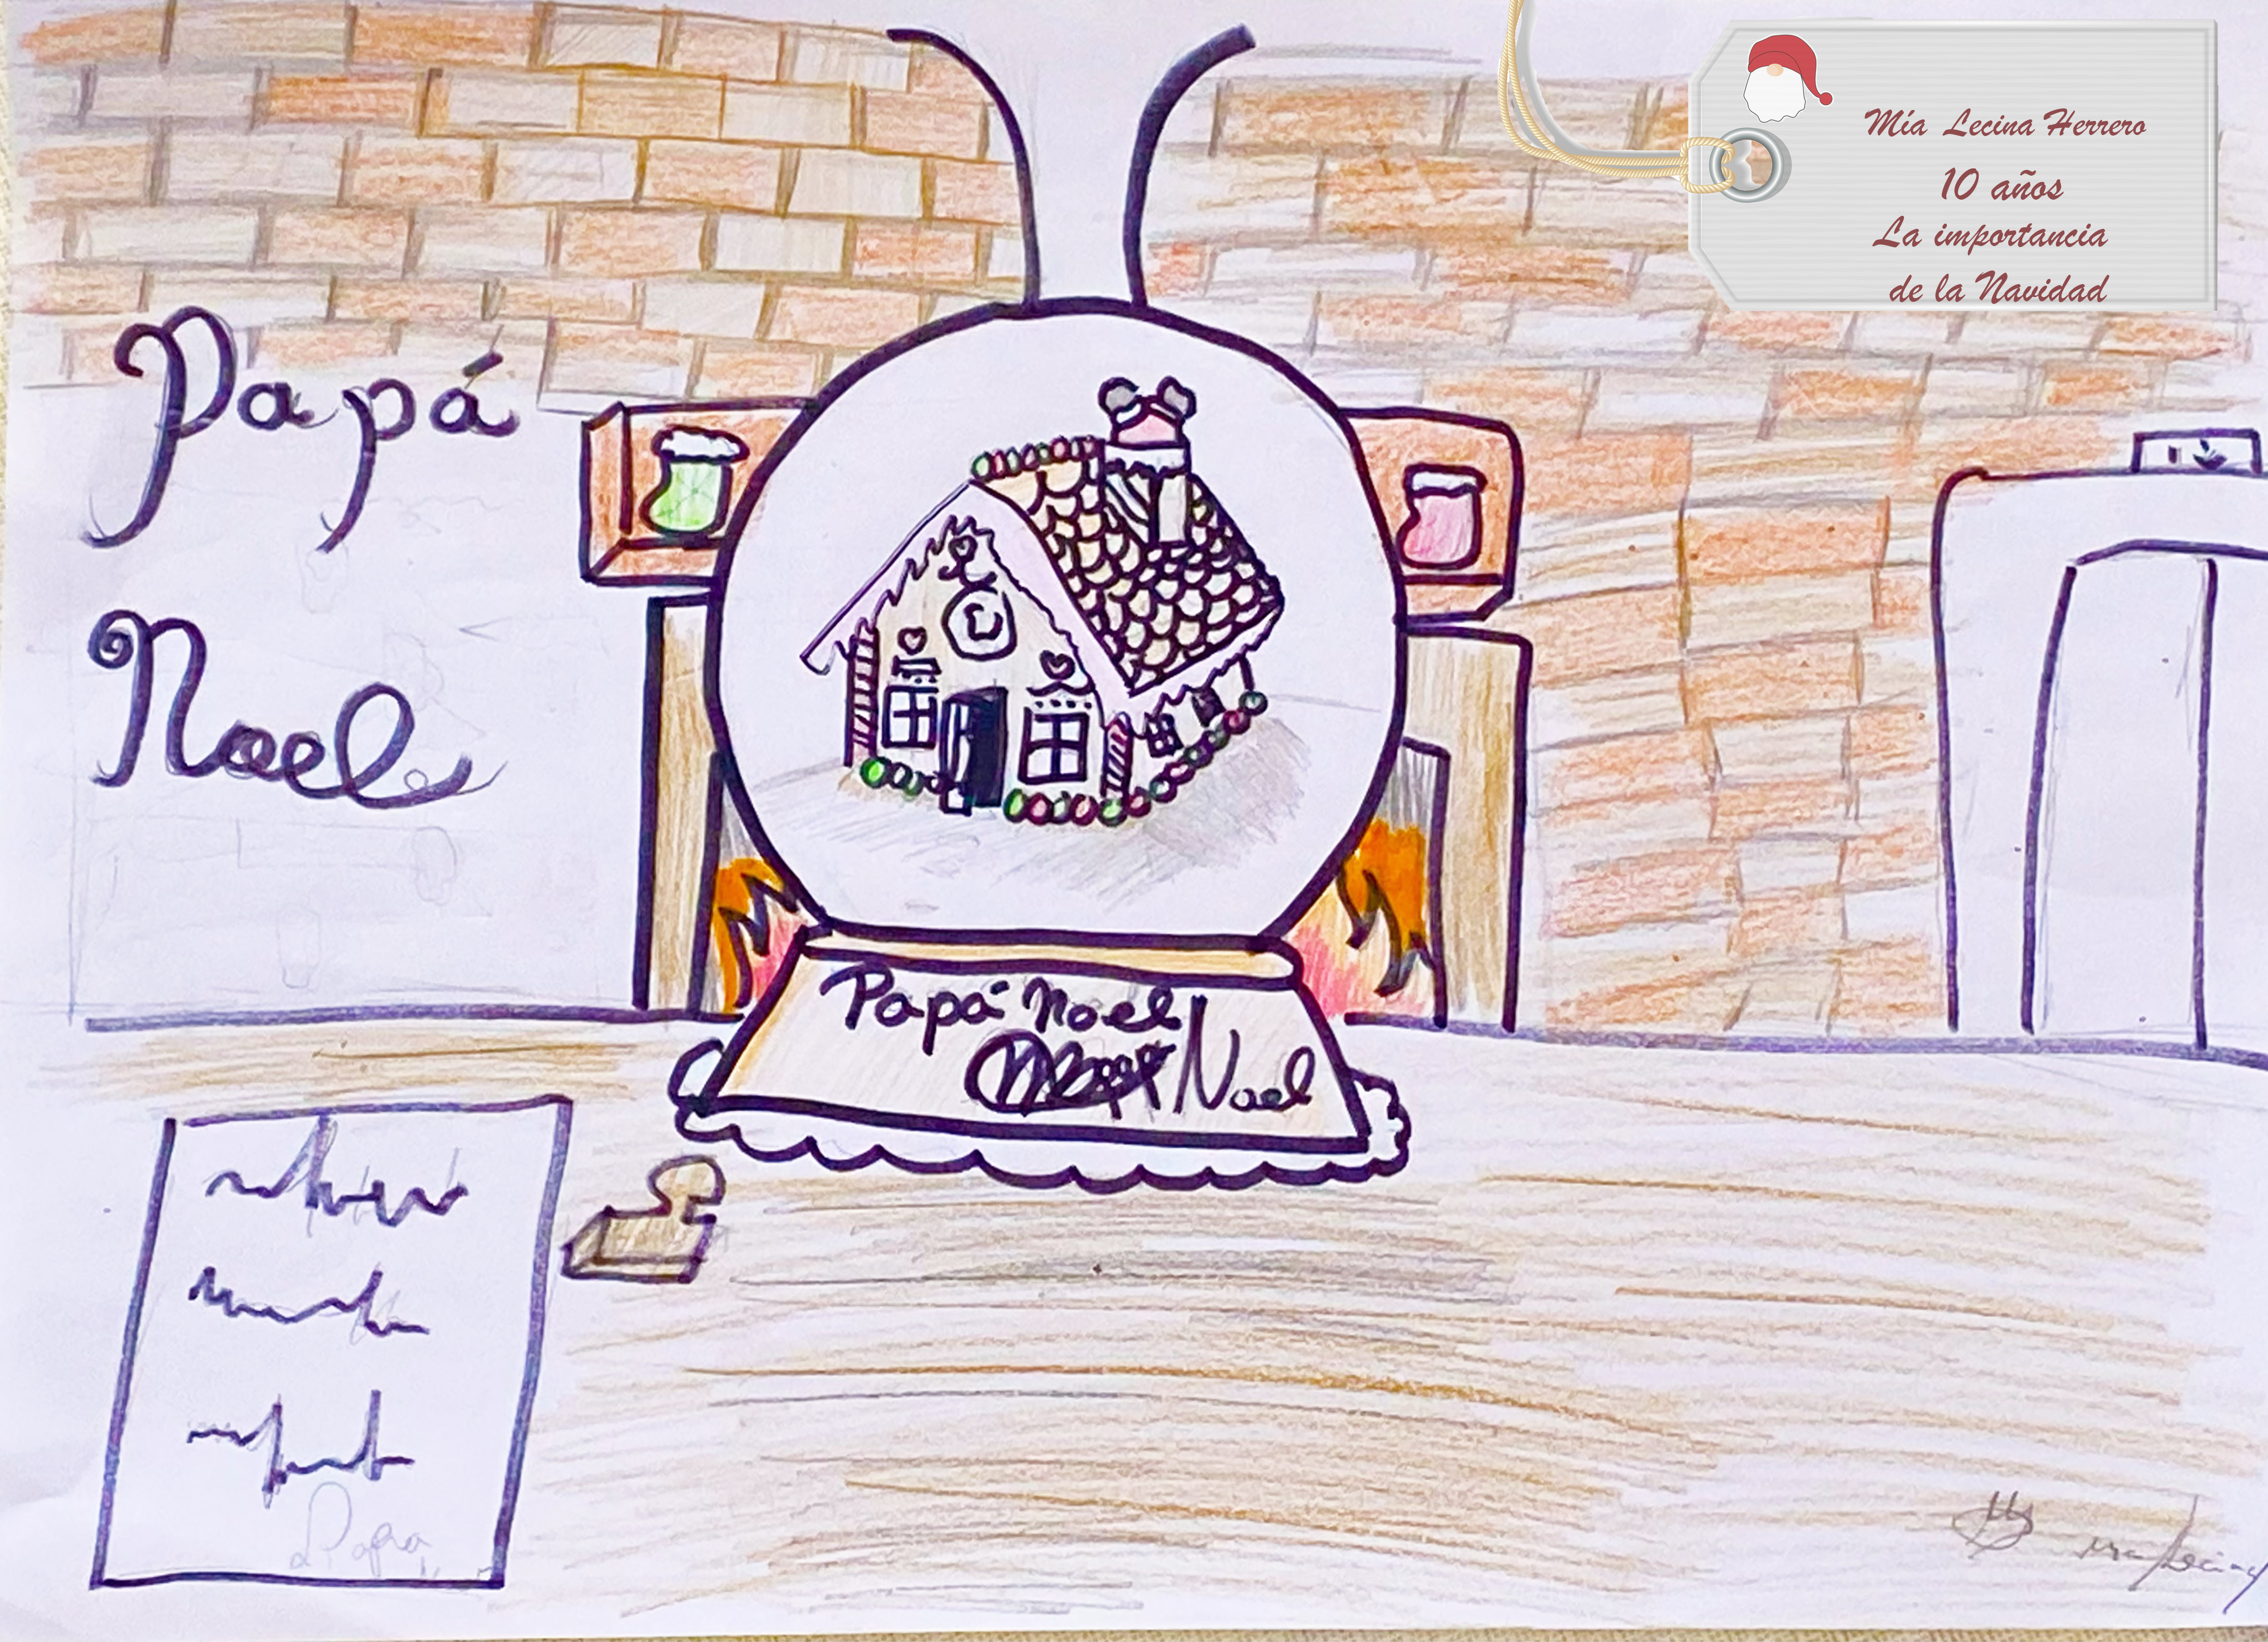 Mía Lecina Herrero
10 años
La importancia
de la Navidad
Papá
Noel
Papá Noel
Noel
Papa